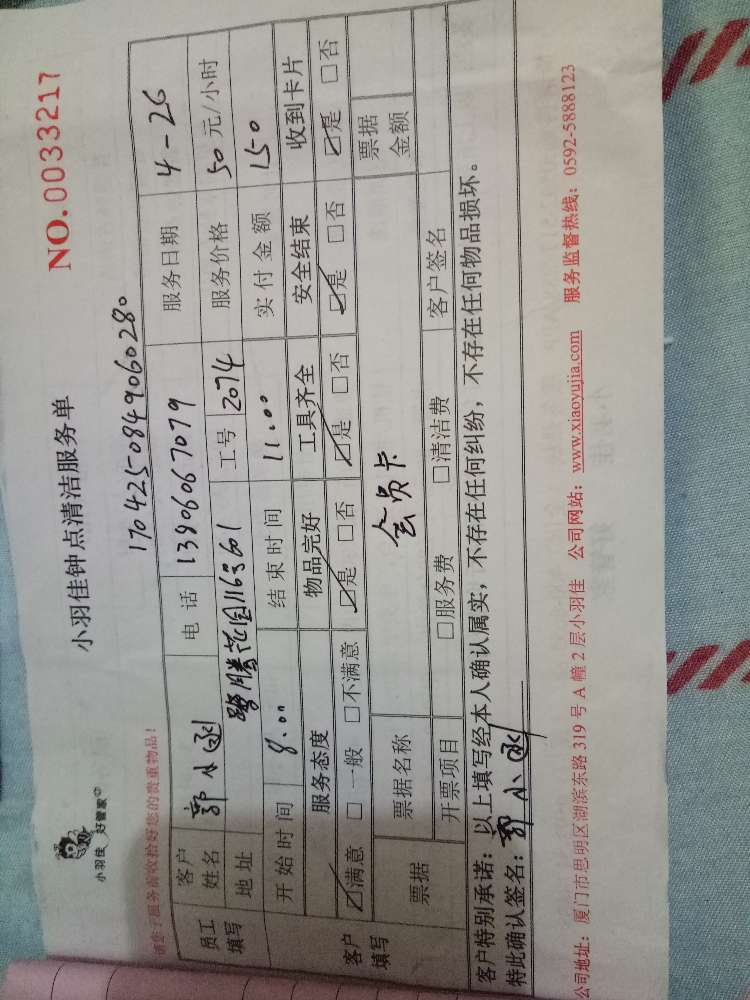 小羽佳 好管家
小羽佳钟点清洁服务单
NO.0033217
请您于服务前收拾好您的贵重物品!
1704250849060280
员工填写
客户姓名 郭小函 电话 13906067079 服务日期 4-26
地址 116#3601 工号 2074 服务价格 50 元/小时
开始时间 8.00 结束时间 11.00 实付金额 150
客户填写
服务态度 物品完好 工具齐全 安全结束 收到卡片
☑满意 □一般 □不满意 ☑是 □否 ☑是 □否 ☑是 □否 ☑是 □否
票据 票据名称 会员卡 票据金额
开票项目 □服务费 □清洁费 客户签名
客户特别承诺:以上填写经本人确认属实,不存在任何纠纷,不存在任何物品损坏。
特此确认签名:郭小函
公司地址:厦门市思明区湖滨东路 319 号 A 幢 2 层小羽佳 公司网站:www.xiaoyujia.com 服务监督热线:0592-5888123